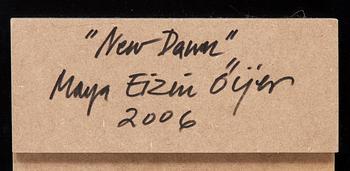 "New Dawn"
Maya Eizin Öijer
2006